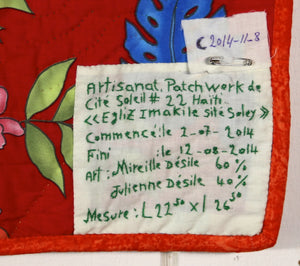 C 2014-11-8
Artisanat. Patchwork de
Cité Soleil # 22 Haiti.
«Egliz Imakile sité Soley»
Commencé:le 2-07-2014
Fini :le 12-08-2014
Art : Mireille Désile 60%
Julienne Désile 40%
Mesure : L 22⁵⁰ x l 26⁵⁰